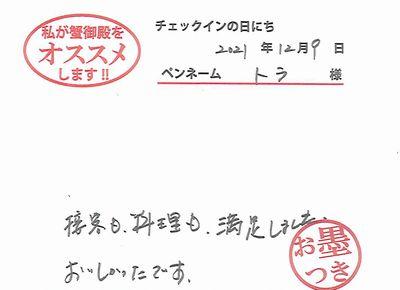 私が蟹御殿を
オススメ
します!!
チェックインの日にち
2021 年 12月 9 日
ペンネーム トラ 様
接客も、料理も、満足しました。
おいしかったです。
お墨
つき